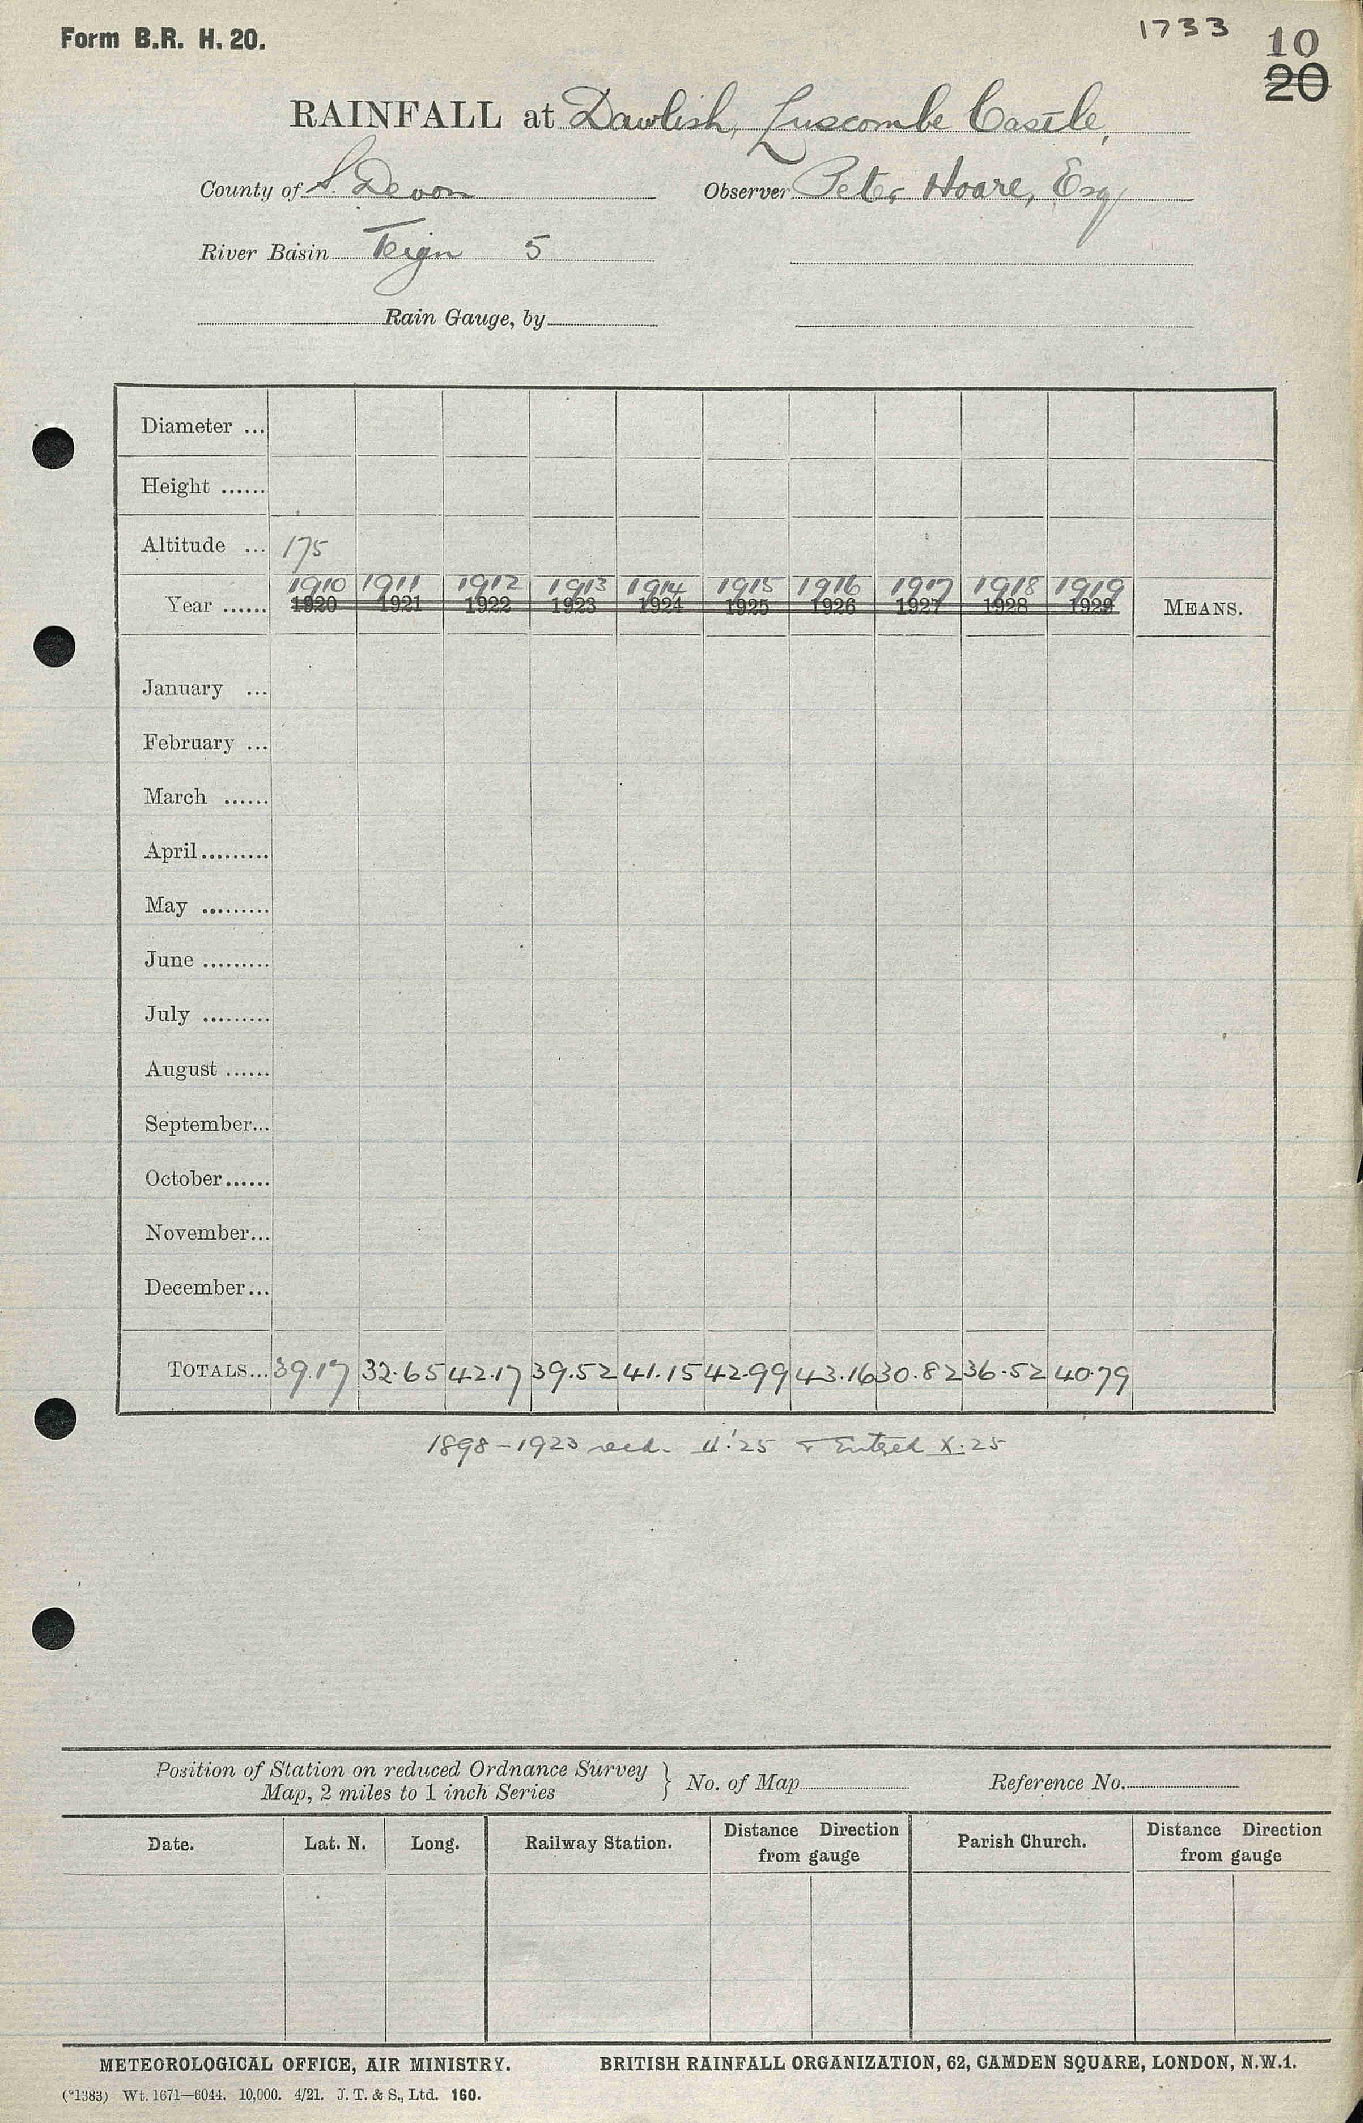 Form B.R. H. 20.
1733
10
20
RAINFALL at Dawlish, Luscombe Castle,
County of S. Devon Observer Peter Hoare, Esq
River Basin Teign 5
Rain Gauge, by
Diameter ...
Height ......
Altitude ... 175
1910 1911 1912 1913 1914 1915 1916 1917 1918 1919
Year ...... 1920 1921 1922 1923 1924 1925 1926 1927 1928 1929 MEANS.
January ...
February ...
March ......
April.........
May .........
June .........
July .........
August ......
September...
October......
November...
December...
TOTALS... 39.17 32.65 42.17 39.52 41.15 42.99 43.16 30.82 36.52 40.79
1898-1923 recd. 4.'25 & Entred X.25
Position of Station on reduced Ordnance Survey
Map, 2 miles to 1 inch Series } No. of Map Reference No.
Date. Lat. N. Long. Railway Station. Distance Direction from gauge Parish Church. Distance Direction from gauge
METEOROLOGICAL OFFICE, AIR MINISTRY. BRITISH RAINFALL ORGANIZATION, 62, CAMDEN SQUARE, LONDON, N.W.1.
(*1383) Wt. 1671—6044. 10,000. 4/21. J. T. & S., Ltd. 160.